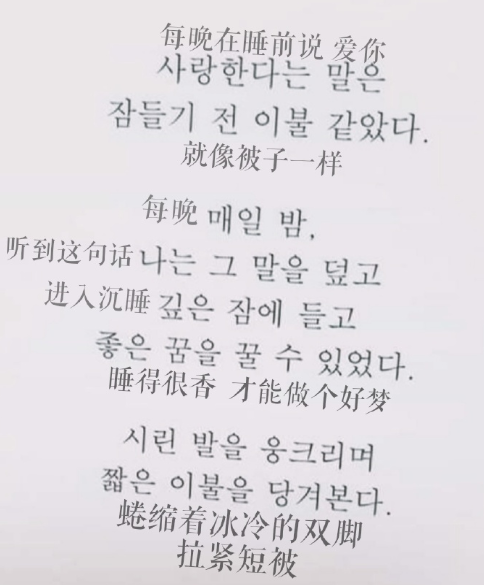 每晚在睡前说 爱你
사랑한다는 말은
잠들기 전 이불 같았다.
就像被子一样
每晚 매일 밤,
听到这句话 나는 그 말을 덮고
进入沉睡 깊은 잠에 들고
좋은 꿈을 꿀 수 있었다.
睡得很香 才能做个好梦
시린 발을 웅크리며
짧은 이불을 당겨본다.
蜷缩着冰冷的双脚
拉紧短被